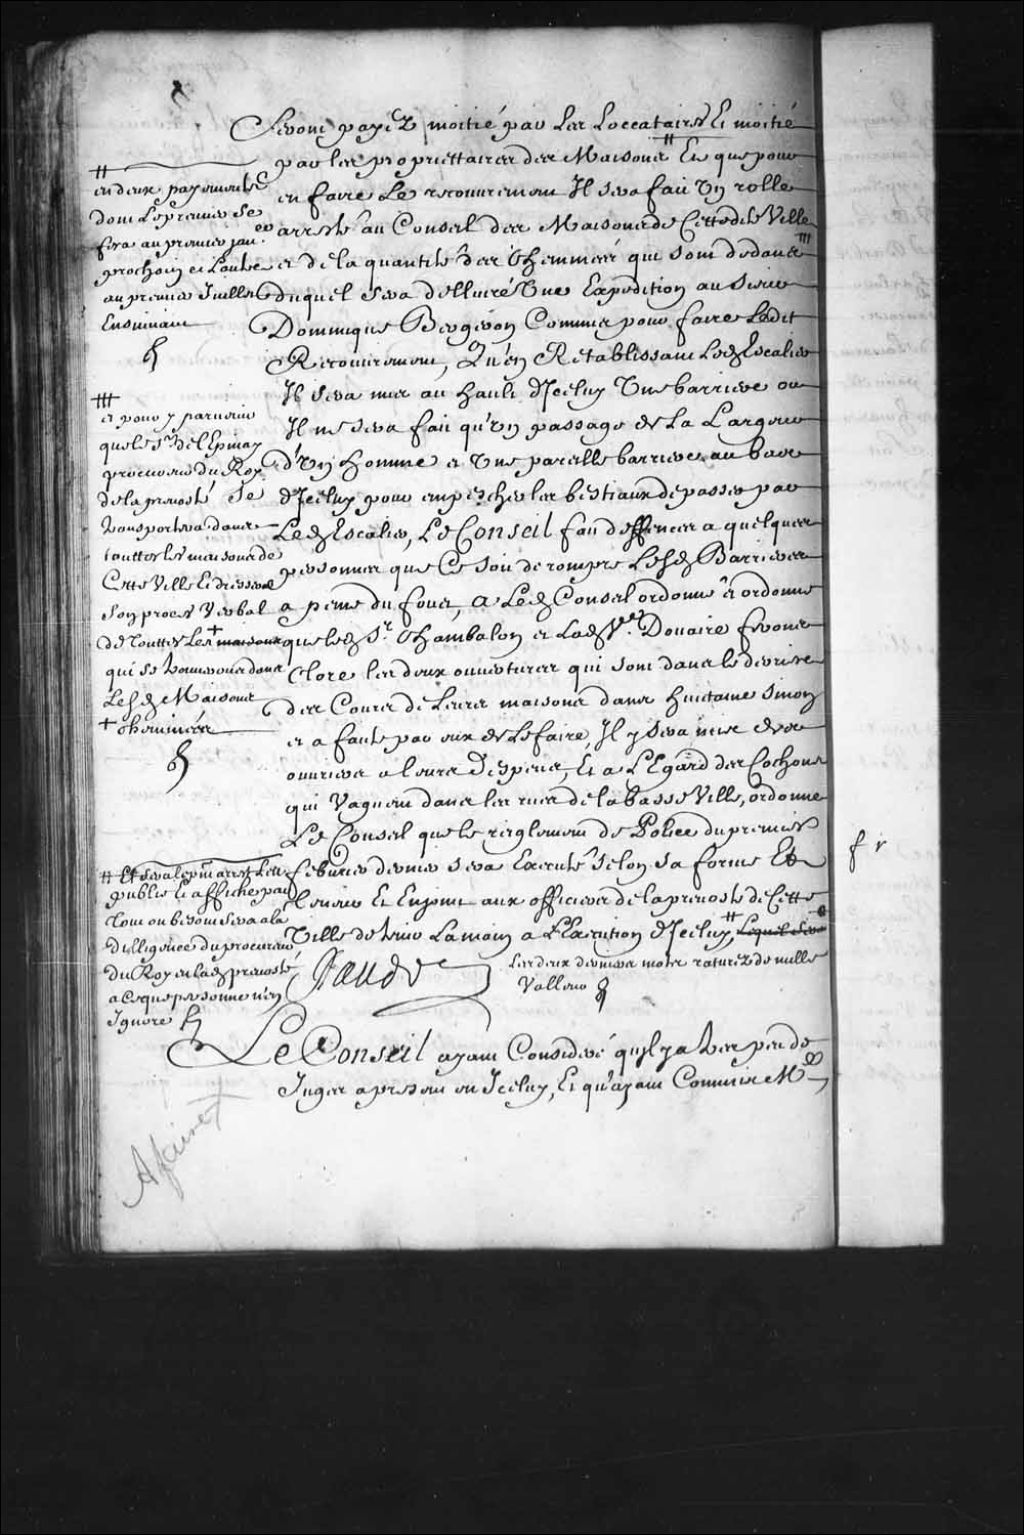 Seront payéz moitié par les Loccataires Et moitié
par les propriettaires des Maisons # Et que pour
en faire Le recouvrement Il sera fait Un rolle
arresté au Conseil des Maisons de Cette ditte Ville
et de la quantité des Chemineés qui sont dedans #
duquel sera dellivré Une Expedition au sieur
Dominique Bergeron Commis pour faire Ledit
Recouvrement, Qu'en Rétablissant Led. Escalier
Il sera mis au hault d'Iceluy Une barriere ou
Il ne sera fait qu'Un passage de La Largeur
d'Un homme et Une pareille barriere au bas
d'Iceluy pour empescher les bestiaux de passer par
Led. Escalier, Le Conseil fait deffences a quelques
personnes que Ce soit de rompre Lesd. Barrieres
a peine du fouet, a Led. Conseil ordonné et ordonne
que led. Sr. Chambalon et Lad. Ve. Douaire feront
Clore les deux ouvertures qui sont dans le derriere
des Cours de Leurs maisons dans huitaine sinon
et a faute par eux de Le faire, Il y sera mis des
ouvriers a leurs despens, Et a L'Egard des Cochons
qui Vaguent dans les rues de la basse Ville, ordonne
Le Conseil que le reiglement de Police du premier
febvrier dernier sera Executé selon sa forme Et
teneur Et Enjoint aux officiers de la prevosté de Cette
Ville de tenir La main a L'Execution d'Iceluy, # Lequel sera
Les deux derniers mots raturez de nulle
Valleur
Le Conseil ayant Consideré qu'il y a tres peu de
Juges a present en Iceluy, Et qu'ayant Commis Me
# en deux payements
dont Le premier se
fera au premier janer.
prochain et L'autre
au premier Juillet
Ensuivant
# et pour y parvenir
que le Sr. de l'Epinay
procureur du Roy
de la prevosté se
transportera dans
touttes les maisons de
Cette Ville Et dressera
son proces Verbal
de Touttes Les + maisons
qui se trouveront dans
Lesd. Maisons
+ cheminées
# Et sera le pnt. arrest Leu
publié Et affiché par
tout ou besoin sera a la
dilligence du procureur
du Roy en lad. prevosté,
a Ce que personne n'en
Ignore
A faire